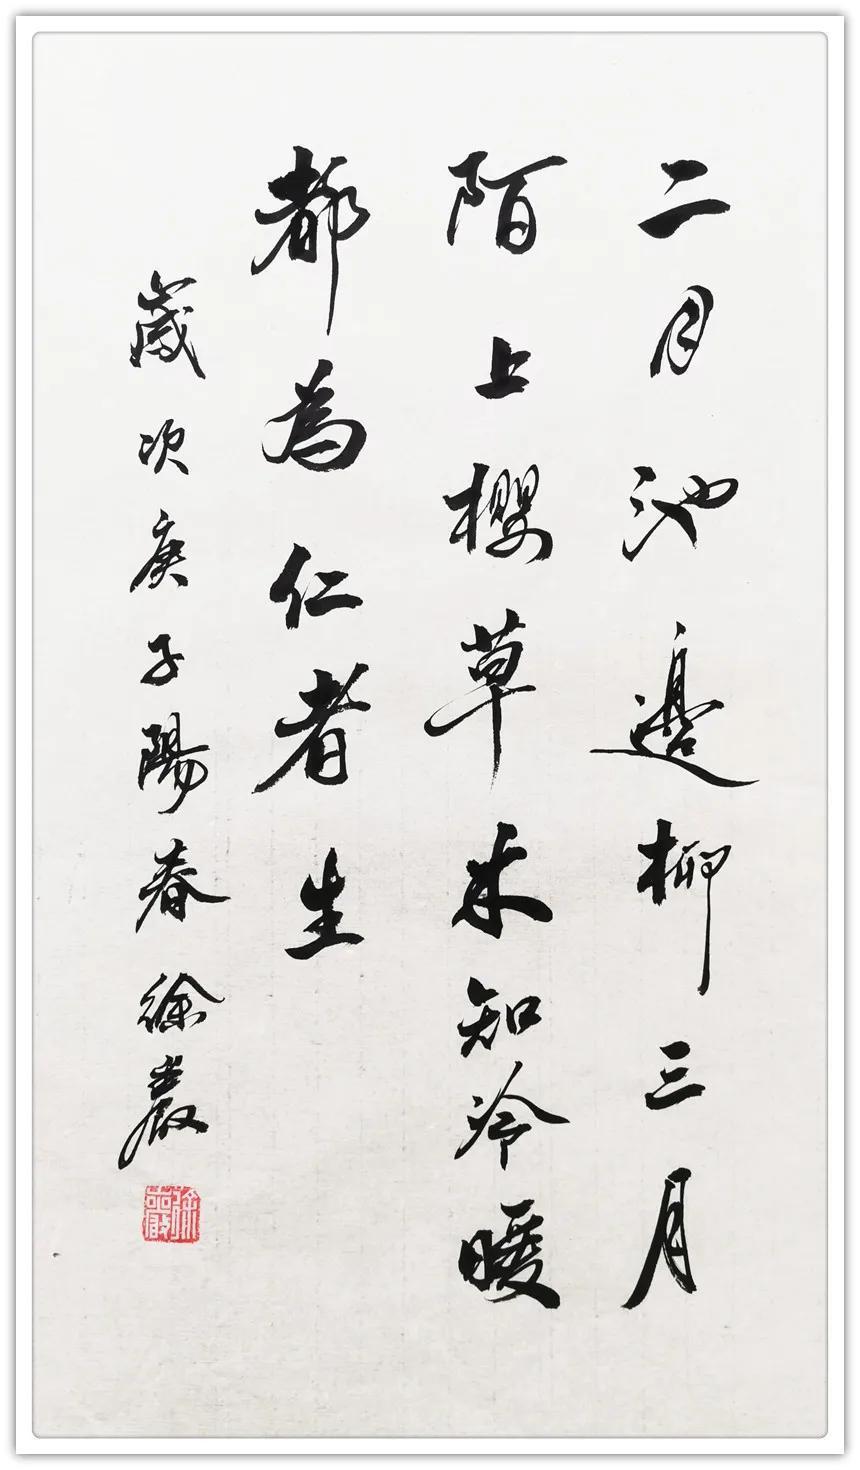 二月池邊柳三月
陌上櫻草木知冷暖
都為仁者生
歲次庚子陽春徐嚴
徐嚴